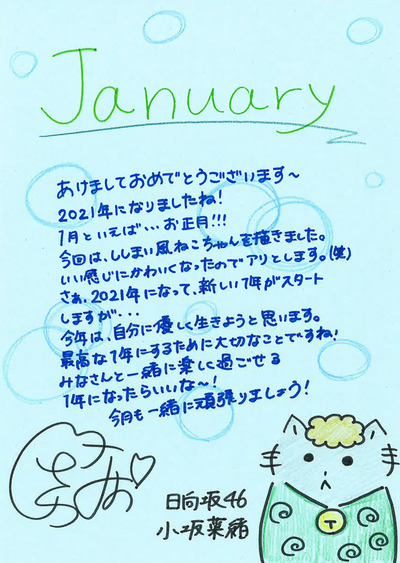 January
あけましておめでとうございます〜
2021年になりましたね!
1月といえば・・・お正月!!!
今回は、ししまい風ねこちゃんを描きました。
いい感じにかわいくなったのでアリとします。(笑)
さぁ、2021年になって、新しい1年がスタート
しますが・・・
今年は、自分に優しく生きようと思います。
最高な1年にするために大切なことですね!
みなさんと一緒に楽しく過ごせる
1年になったらいいな〜!
今月も一緒に頑張りましょう!
日向坂46
小坂菜緒
T